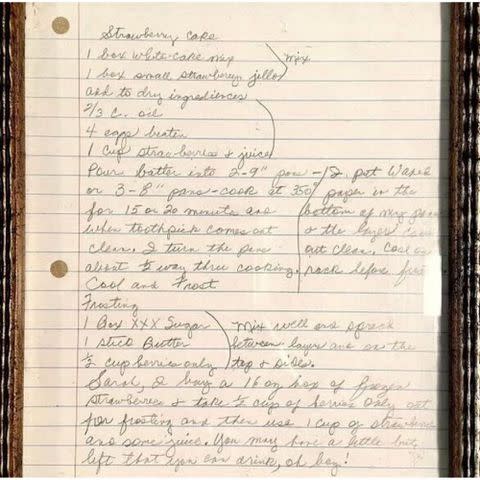 Strawberry Cake
1 box white cake mix
1 box small strawberry jello
Mix
add to dry ingredients
2/3 C. oil
4 eggs beaten
1 cup strawberries & juice
Pour batter into 2-9" pans
or 3-8" pans - cook at 350°
for 15 or 20 minutes and
when toothpick comes out
clean. I turn the pans
about ½ way thru cooking.
Cool and Frost
I put Waxed
paper in the
bottom of my pans
& the layers come
out clean. Cool on
rack before frost
Frosting
1 Box XXX Sugar
1 Stick Butter
½ cup berries only
Mix well and spread
between layers and on the
top & sides.
Sarah, I buy a 16 oz box of frozen
strawberries & take ½ cup of berries only out
for frosting and then use 1 cup of strawberries
and some juice. You may have a little
left that you can drink, oh boy!